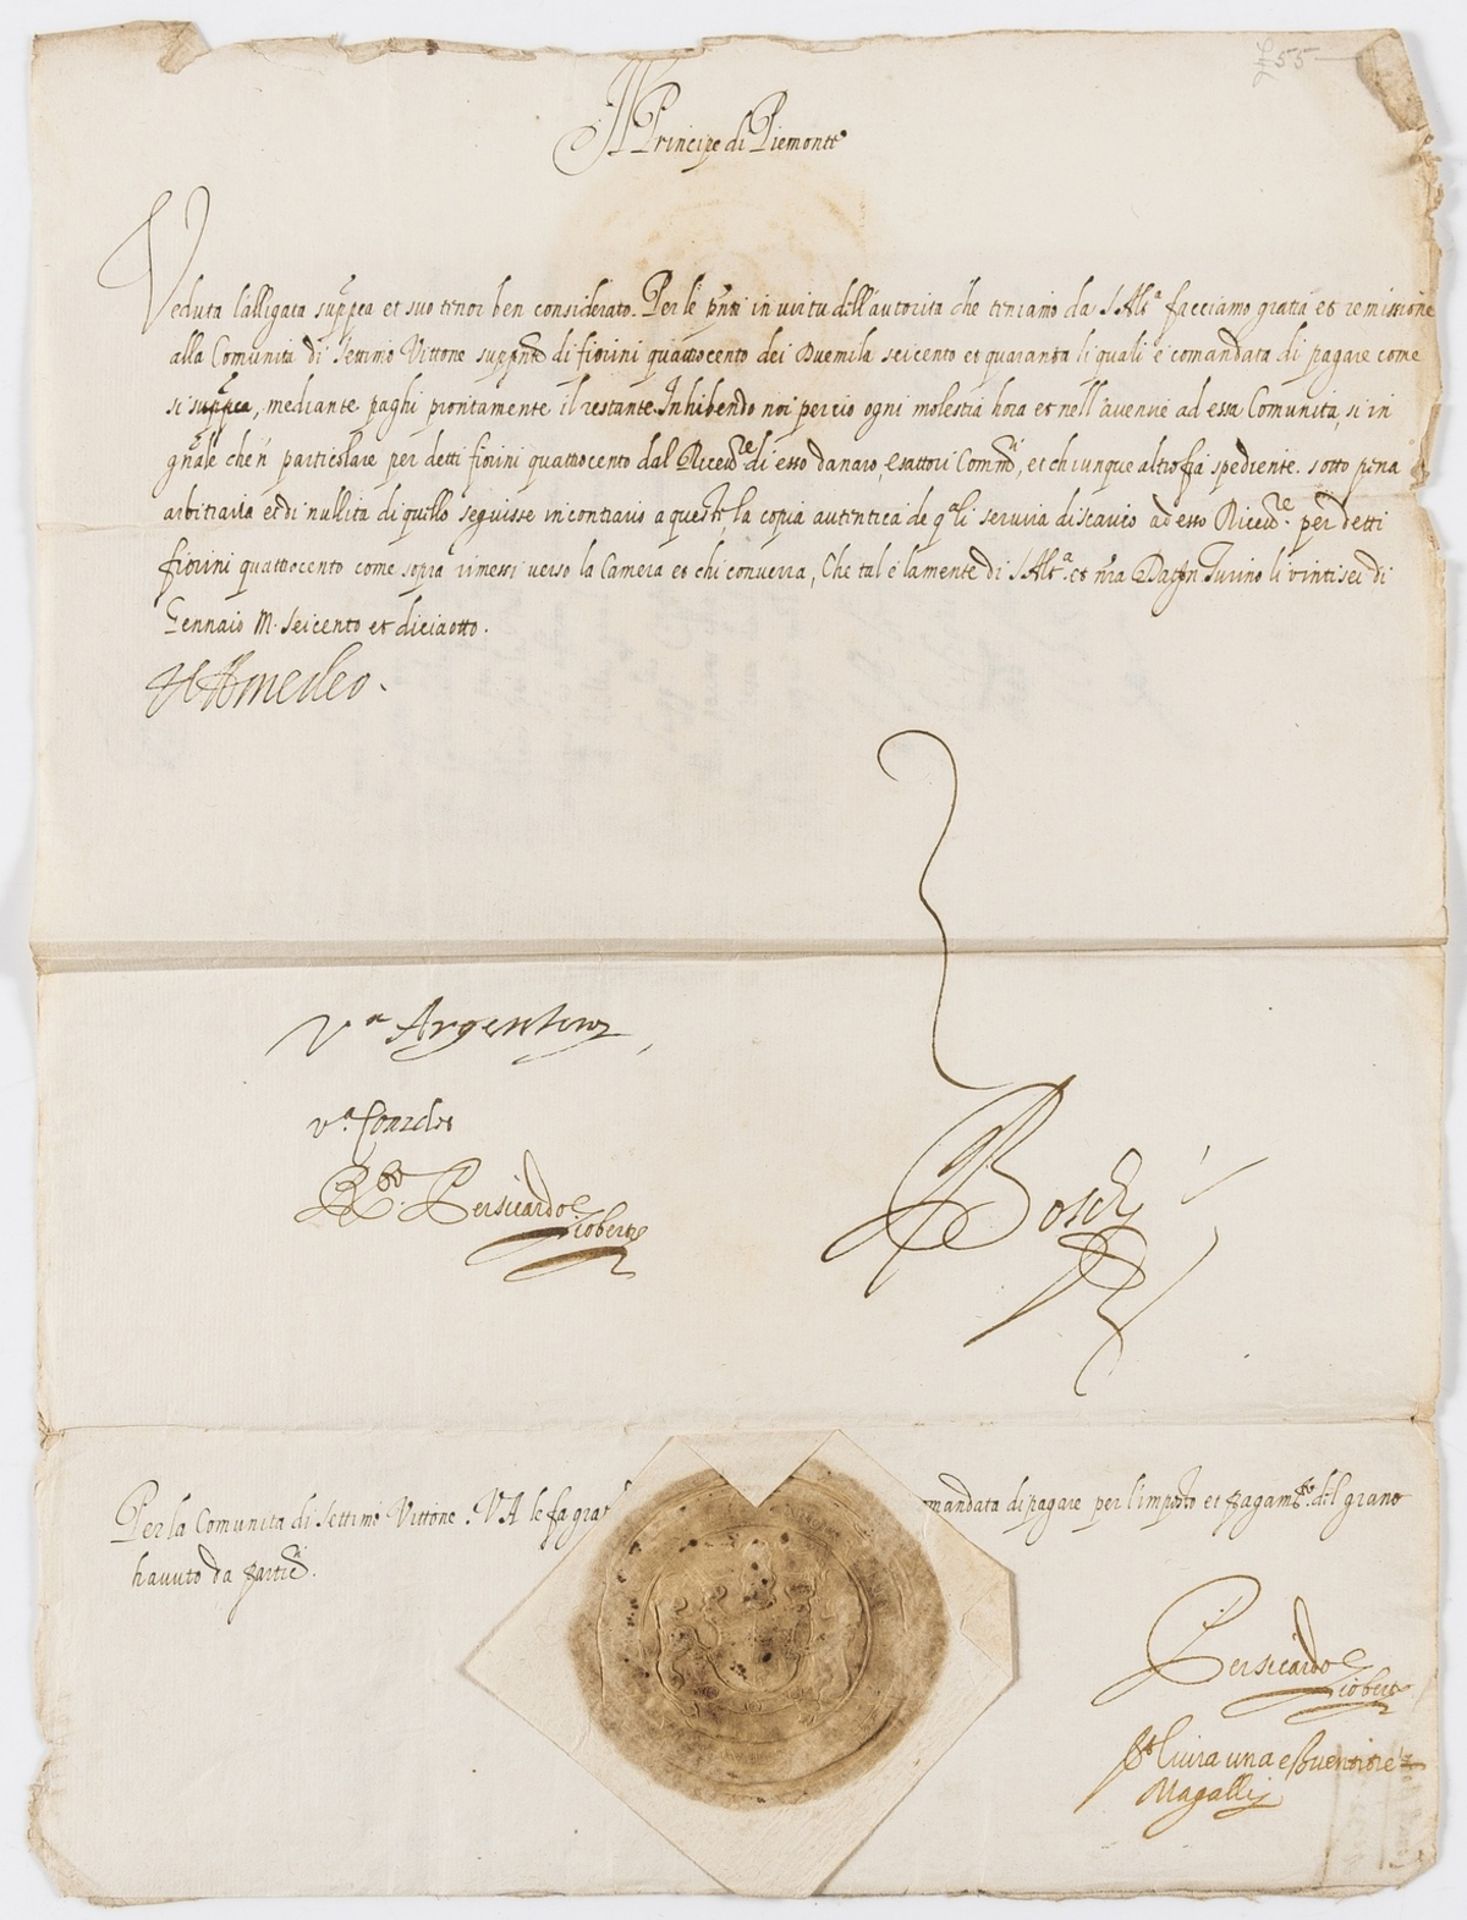 £55–
Il Principe di Piemonte
Veduta l'alligata supp.ca et suo tenor ben considerato. Per le p̃nti in virtu dell'autorita che teniamo da S Alt.a facciamo gratia et remissione
alla Comunita di Settimo Vittone supp̃nte di fiorini quattrocento dei Duemila seicento et quaranta li quali è comandata di pagare come
si supp.ca, mediante paghi prontamente il restante. Inhibendo noi percio ogni molestia hora et nell'avenire ad essa Comunita, si in
gñale che ñ particolare per detti fiorini quattrocento dal Ricev.re di esso danaro, esattori Comm.ri, et chiunque altro fia spediente. sotto pena
arbitraria et di nullita di quello seguisse in contrario a queste, la copia autentica de q.ali servira di scarico ad esso Ricev.re per detti
fiorini quattrocento come sopra rimessi verso la Camera et chi converra, Che tal è la mente di S Alt.a et ñra Dat. in Turino li vintisei di
Gennaio M. seicento et diciaotto.
V Amedeo.
V.a Argentero
v.a
R.ta Persicardo
Gioberto
Boschi
Per la Comunita di Settimo Vittone. V A le fa grat
omandata di pagare per l'imposto et pagam.to del grano
havuto da partic.ri
Persicardo
Gioberto
livra una e
Magalli